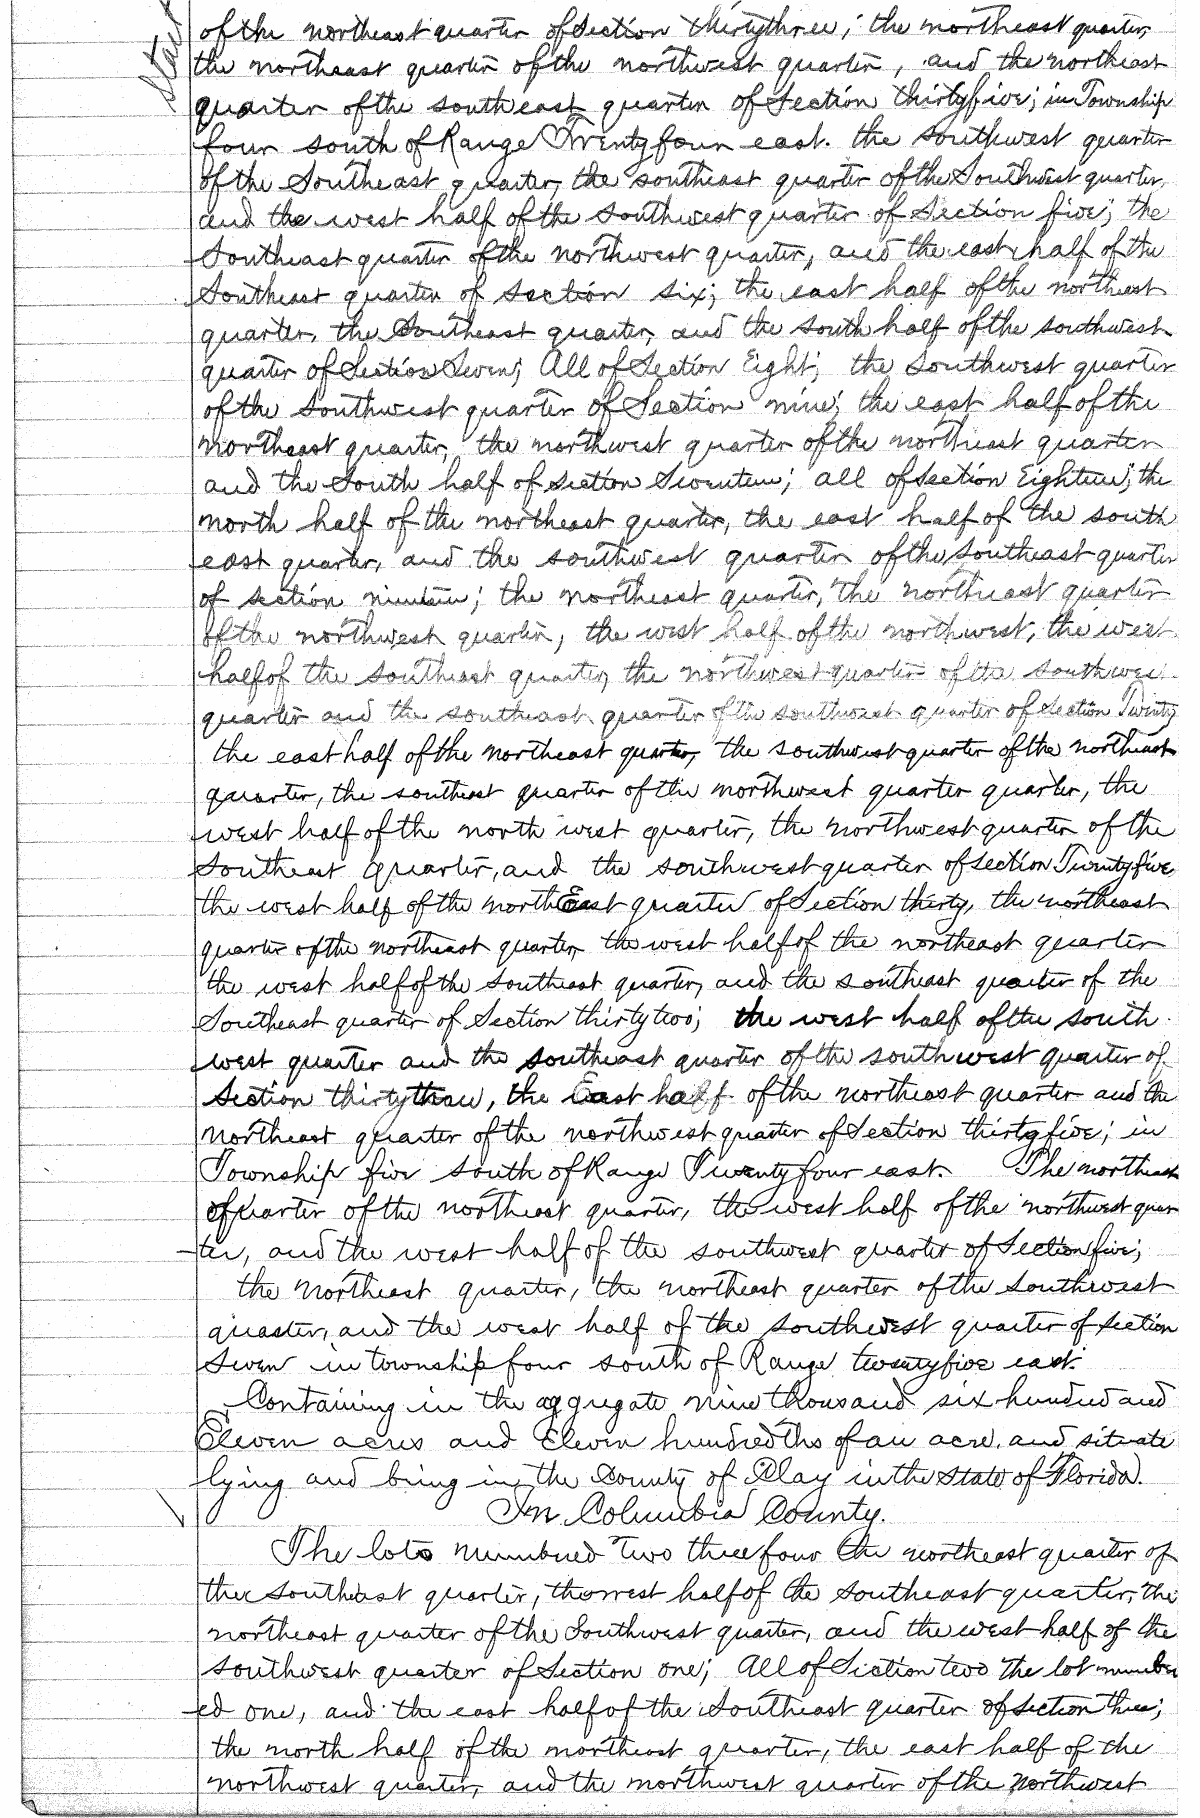 State
of the northeast quarter of Section thirtythree; the northeast quarter,
the northeast quarter of the northwest quarter, and the northeast
quarter of the southeast quarter of Section thirtyfive; in Township
four south of Range Twentyfour east. the southwest quarter
of the Southeast quarter, the southeast quarter of the Southwest quarter,
and the west half of the southwest quarter of Section five; the
Southeast quarter of the northwest quarter, and the east half of the
Southeast quarter of Section six; the east half of the northeast
quarter, the Southeast quarter, and the south half of the southwest
quarter of Section Seven; All of Section Eight; the Southwest quarter
of the Southwest quarter of Section nine; the east half of the
northeast quarter, the northwest quarter of the northeast quarter
and the South half of Section Seventeen; all of Section Eighteen; the
north half of the northeast quarter, the east half of the south
east quarter, and the southwest quarter of the Southeast quarter
of section nineteen; the northeast quarter, the northeast quarter
of the northwest quarter, the west half of the northwest, the west
half of the southeast quarter, the northwest quarter of the southwest
quarter and the southeast quarter of the southwest quarter of Section Twenty
the east half of the northeast quarter, the southwest quarter of the northeast
quarter, the southeast quarter of the northwest quarter quarter, the
west half of the north west quarter, the northwest quarter of the
Southeast quarter, and the southwest quarter of section Twentyfive
the west half of the northEast quarter of Section thirty, the northeast
quarter of the northeast quarter, the west half of the northeast quarter
the west half of the Southeast quarter, and the southeast quarter of the
Southeast quarter of Section thirtytwo; the west half of the south
west quarter and the southeast quarter of the southwest quarter of
Section thirtythree, the East half of the northeast quarter and the
northeast quarter of the northwest quarter of Section thirtyfive; in
Township five south of Range Twentyfour east. The northeast
quarter of the northeast quarter, the west half of the northwest quar
ter, and the west half of the southwest quarter of Section five;
the northeast quarter, the northeast quarter of the southwest
quarter, and the west half of the southwest quarter of section
Seven in township four south of Range twentyfive east.
Containing in the aggregate nine thousand six hundred and
Eleven acres and Eleven hundredths of an acre, and situate
lying and being in the County of Clay in the State of Florida.
In Columbia County.
The lots numbered Two three four the northeast quarter of
the southeast quarter, the west half of the southeast quarter, the
northeast quarter of the Southwest quarter, and the west half of the
southwest quarter of Section one; All of Section two the lot number
ed one, and the east half of the Southeast quarter of section three;
the north half of the northeast quarter, the east half of the
northwest quarter, and the northwest quarter of the northwest